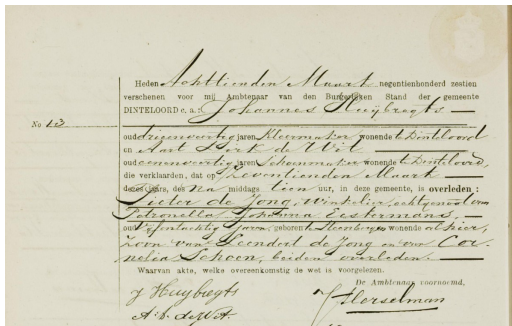 Heden Achttienden Maart negentienhonderd zestien
verschenen voor mij Ambtenaar van den Burgerlijken Stand der gemeente
DINTELOORD c. a.: Johannes Huybregts
No 13
oud drieenveertig jaren, Kleermaker wonende te Dinteloord
en Aart Dirk de Wit
oud eenenveertig jaren Schoenmaker wonende te Dinteloord,
die verklaarden, dat op Zeventienden Maart
dezes jaars, des Na middags tien uur, in deze gemeente, is overleden :
Pieter de Jong, Winkelier, echtgenoot van
Petronella Johanna Eestermans,
oud Vijfentachtig Jaren, geboren te Steenbergen wonende alhier,
Zoon van Leendert de Jong en van Cor-
nelia Schoon, beiden overleden.
Waarvan akte, welke overeenkomstig de wet is voorgelezen.
De Ambtenaar voornoemd,
J Huybregts
A. D. de Wit